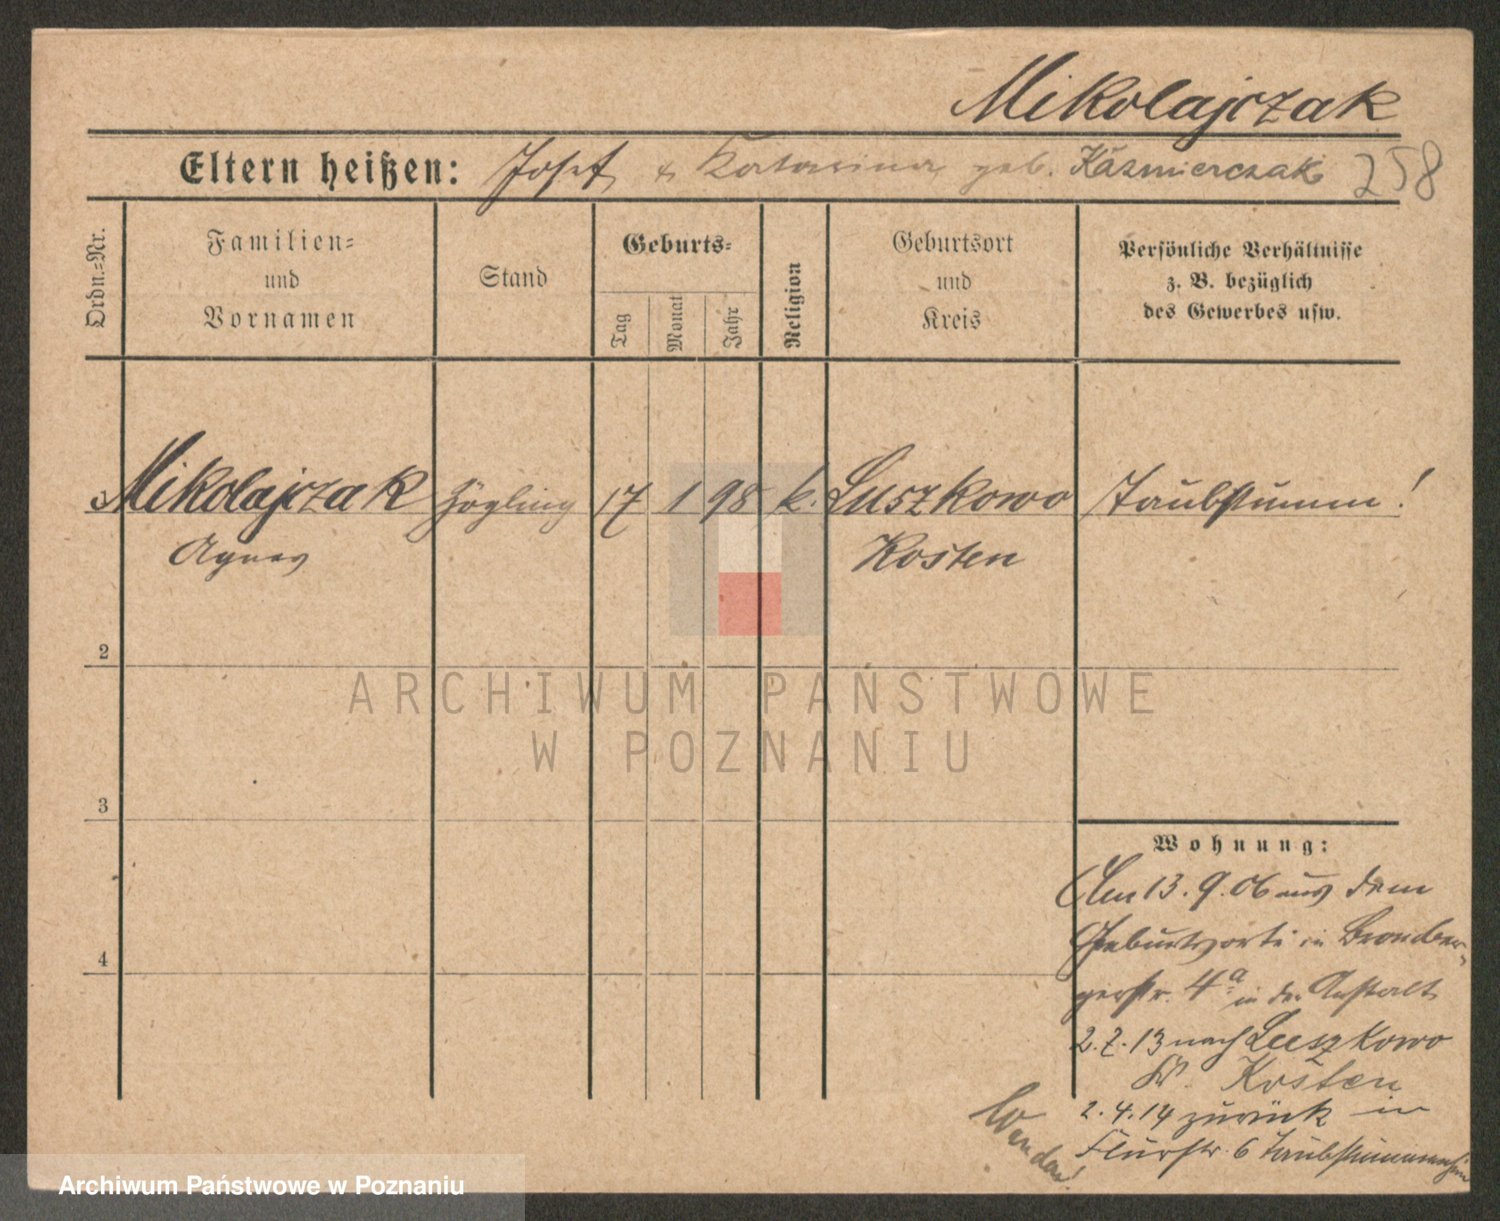 Mikolajczak
Eltern heißen: Josef & Katarina geb. Kaźmierczak 258
Ordn.-Nr.
Familien-
und
Vornamen
Stand
Geburts-
Tag
Monat
Jahr
Religion
Geburtsort
und
Kreis
Persönliche Verhältnisse
z. B. bezüglich
des Gewerbes usw.
Mikolajczak Zögling 17 1 98 k. Luszkowo Taubstumm!
Agnes Kosten
2
ARCHIWUM PAŃSTWOWE
W POZNANIU
3
Wohnung:
Am 13. 9. 06 aus dem
Geburtsorte in Bromber-
gerstr. 4a in der Anstalt
2. 7. 13 nach Luszkowo
4
Kr. Kosten
2. 4. 14 zurück in
Flurstr. 6 Taubstummenheim
Wenden!
Archiwum Państwowe w Poznaniu